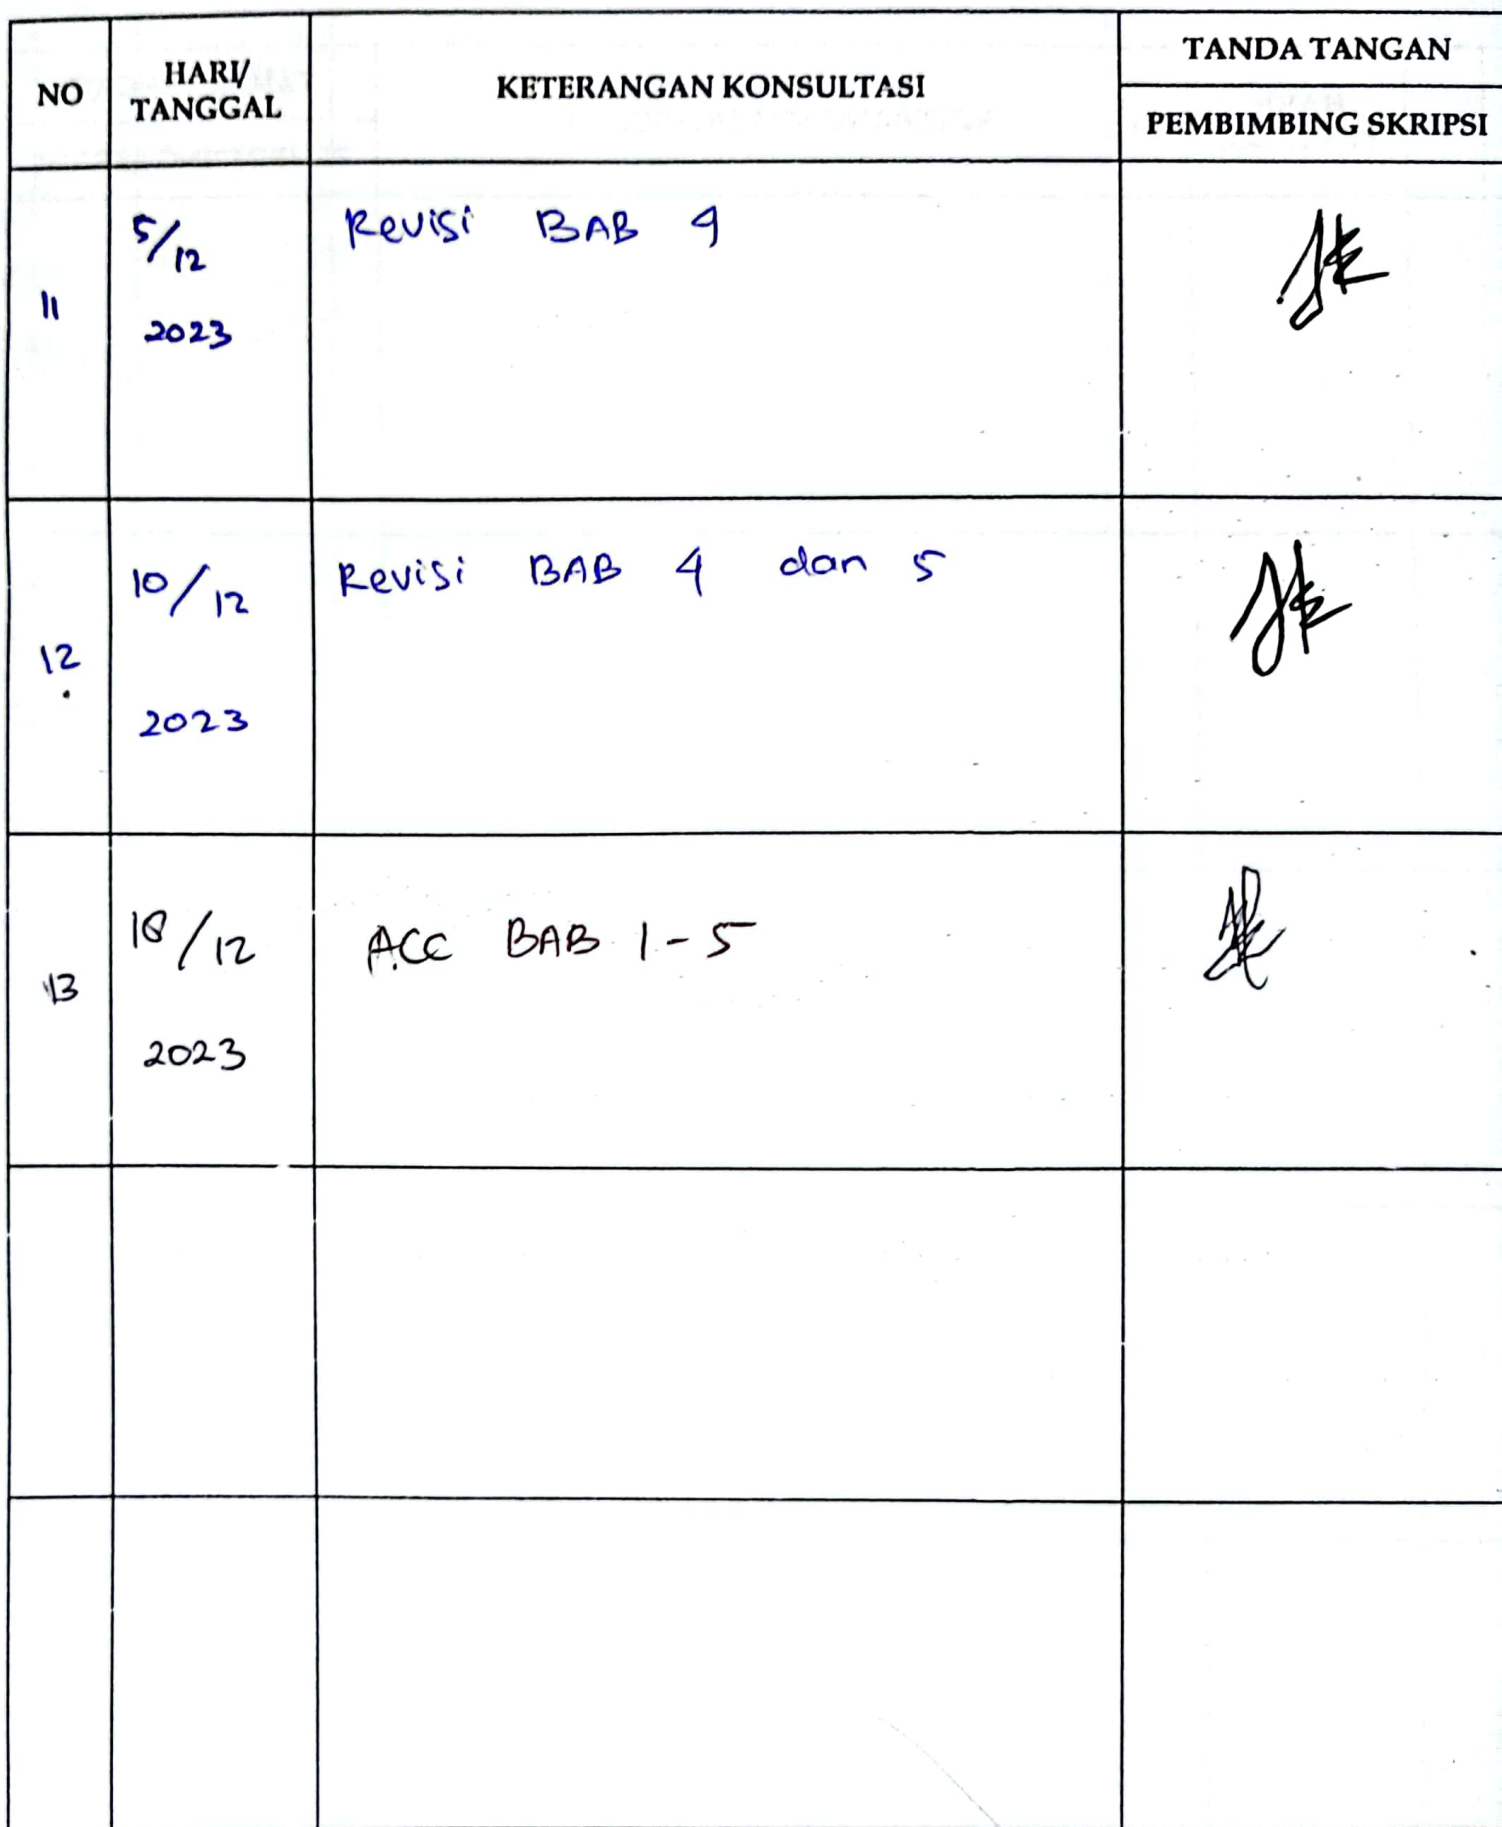 NO
HARI/
TANGGAL
KETERANGAN KONSULTASI
TANDA TANGAN
PEMBIMBING SKRIPSI
11
5/12
2023
Revisi BAB 4
12
10/12
2023
Revisi BAB 4 dan 5
13
18/12
2023
ACC BAB 1-5